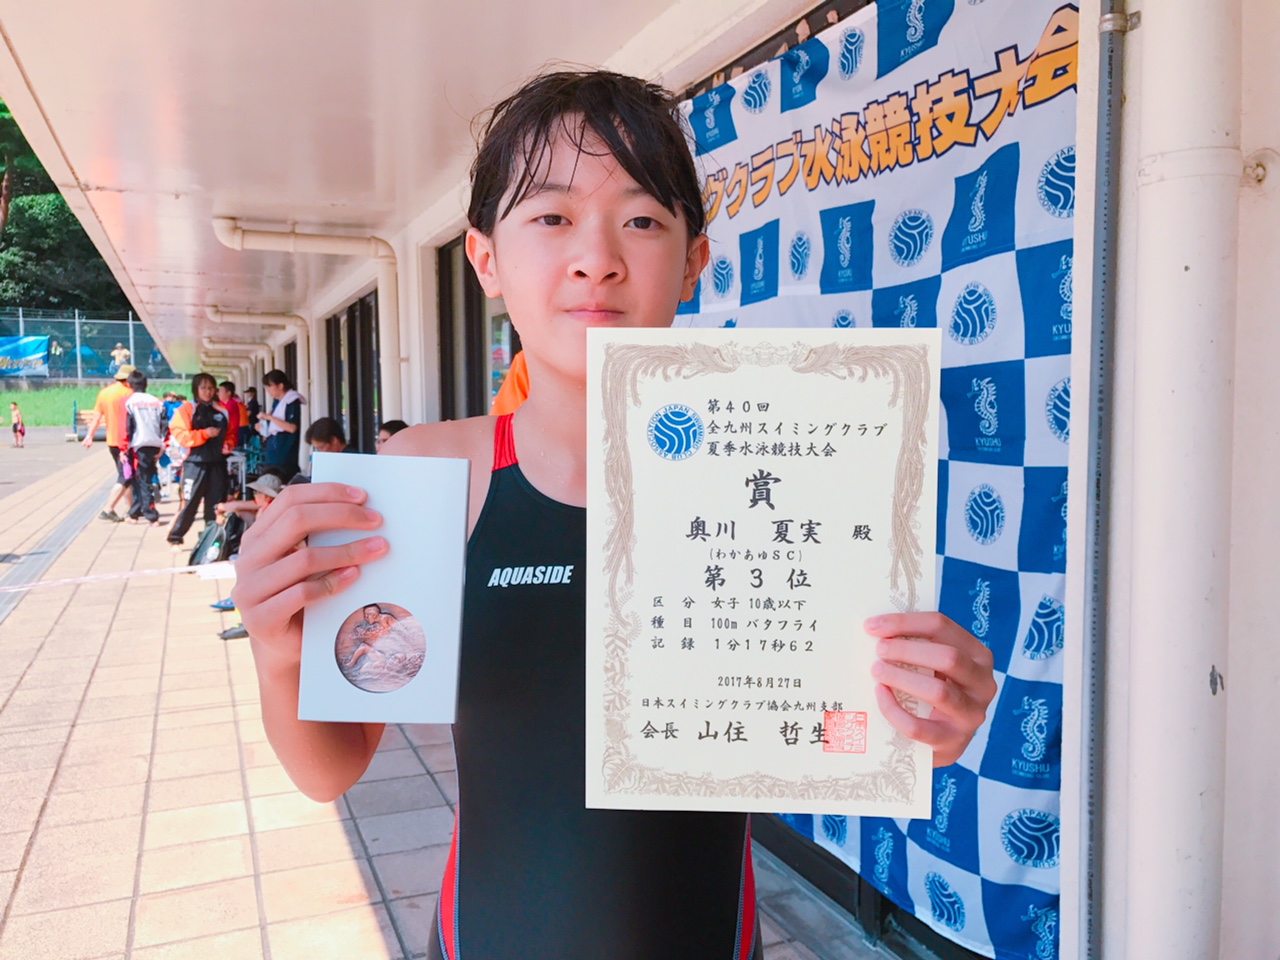 グクラブ水泳競技大会
第40回
全九州スイミングクラブ
夏季水泳競技大会
賞
奥川 夏実 殿
(わかあゆSC)
第 3 位
区 分 女子 10歳以下
種 目 100m バタフライ
記 録 1分17秒62
2017年8月27日
日本スイミングクラブ協会九州支部
会長 山住 哲生
AQUASIDE
KYUSHU
KYUSHU
KYUSHU
KYUSHU